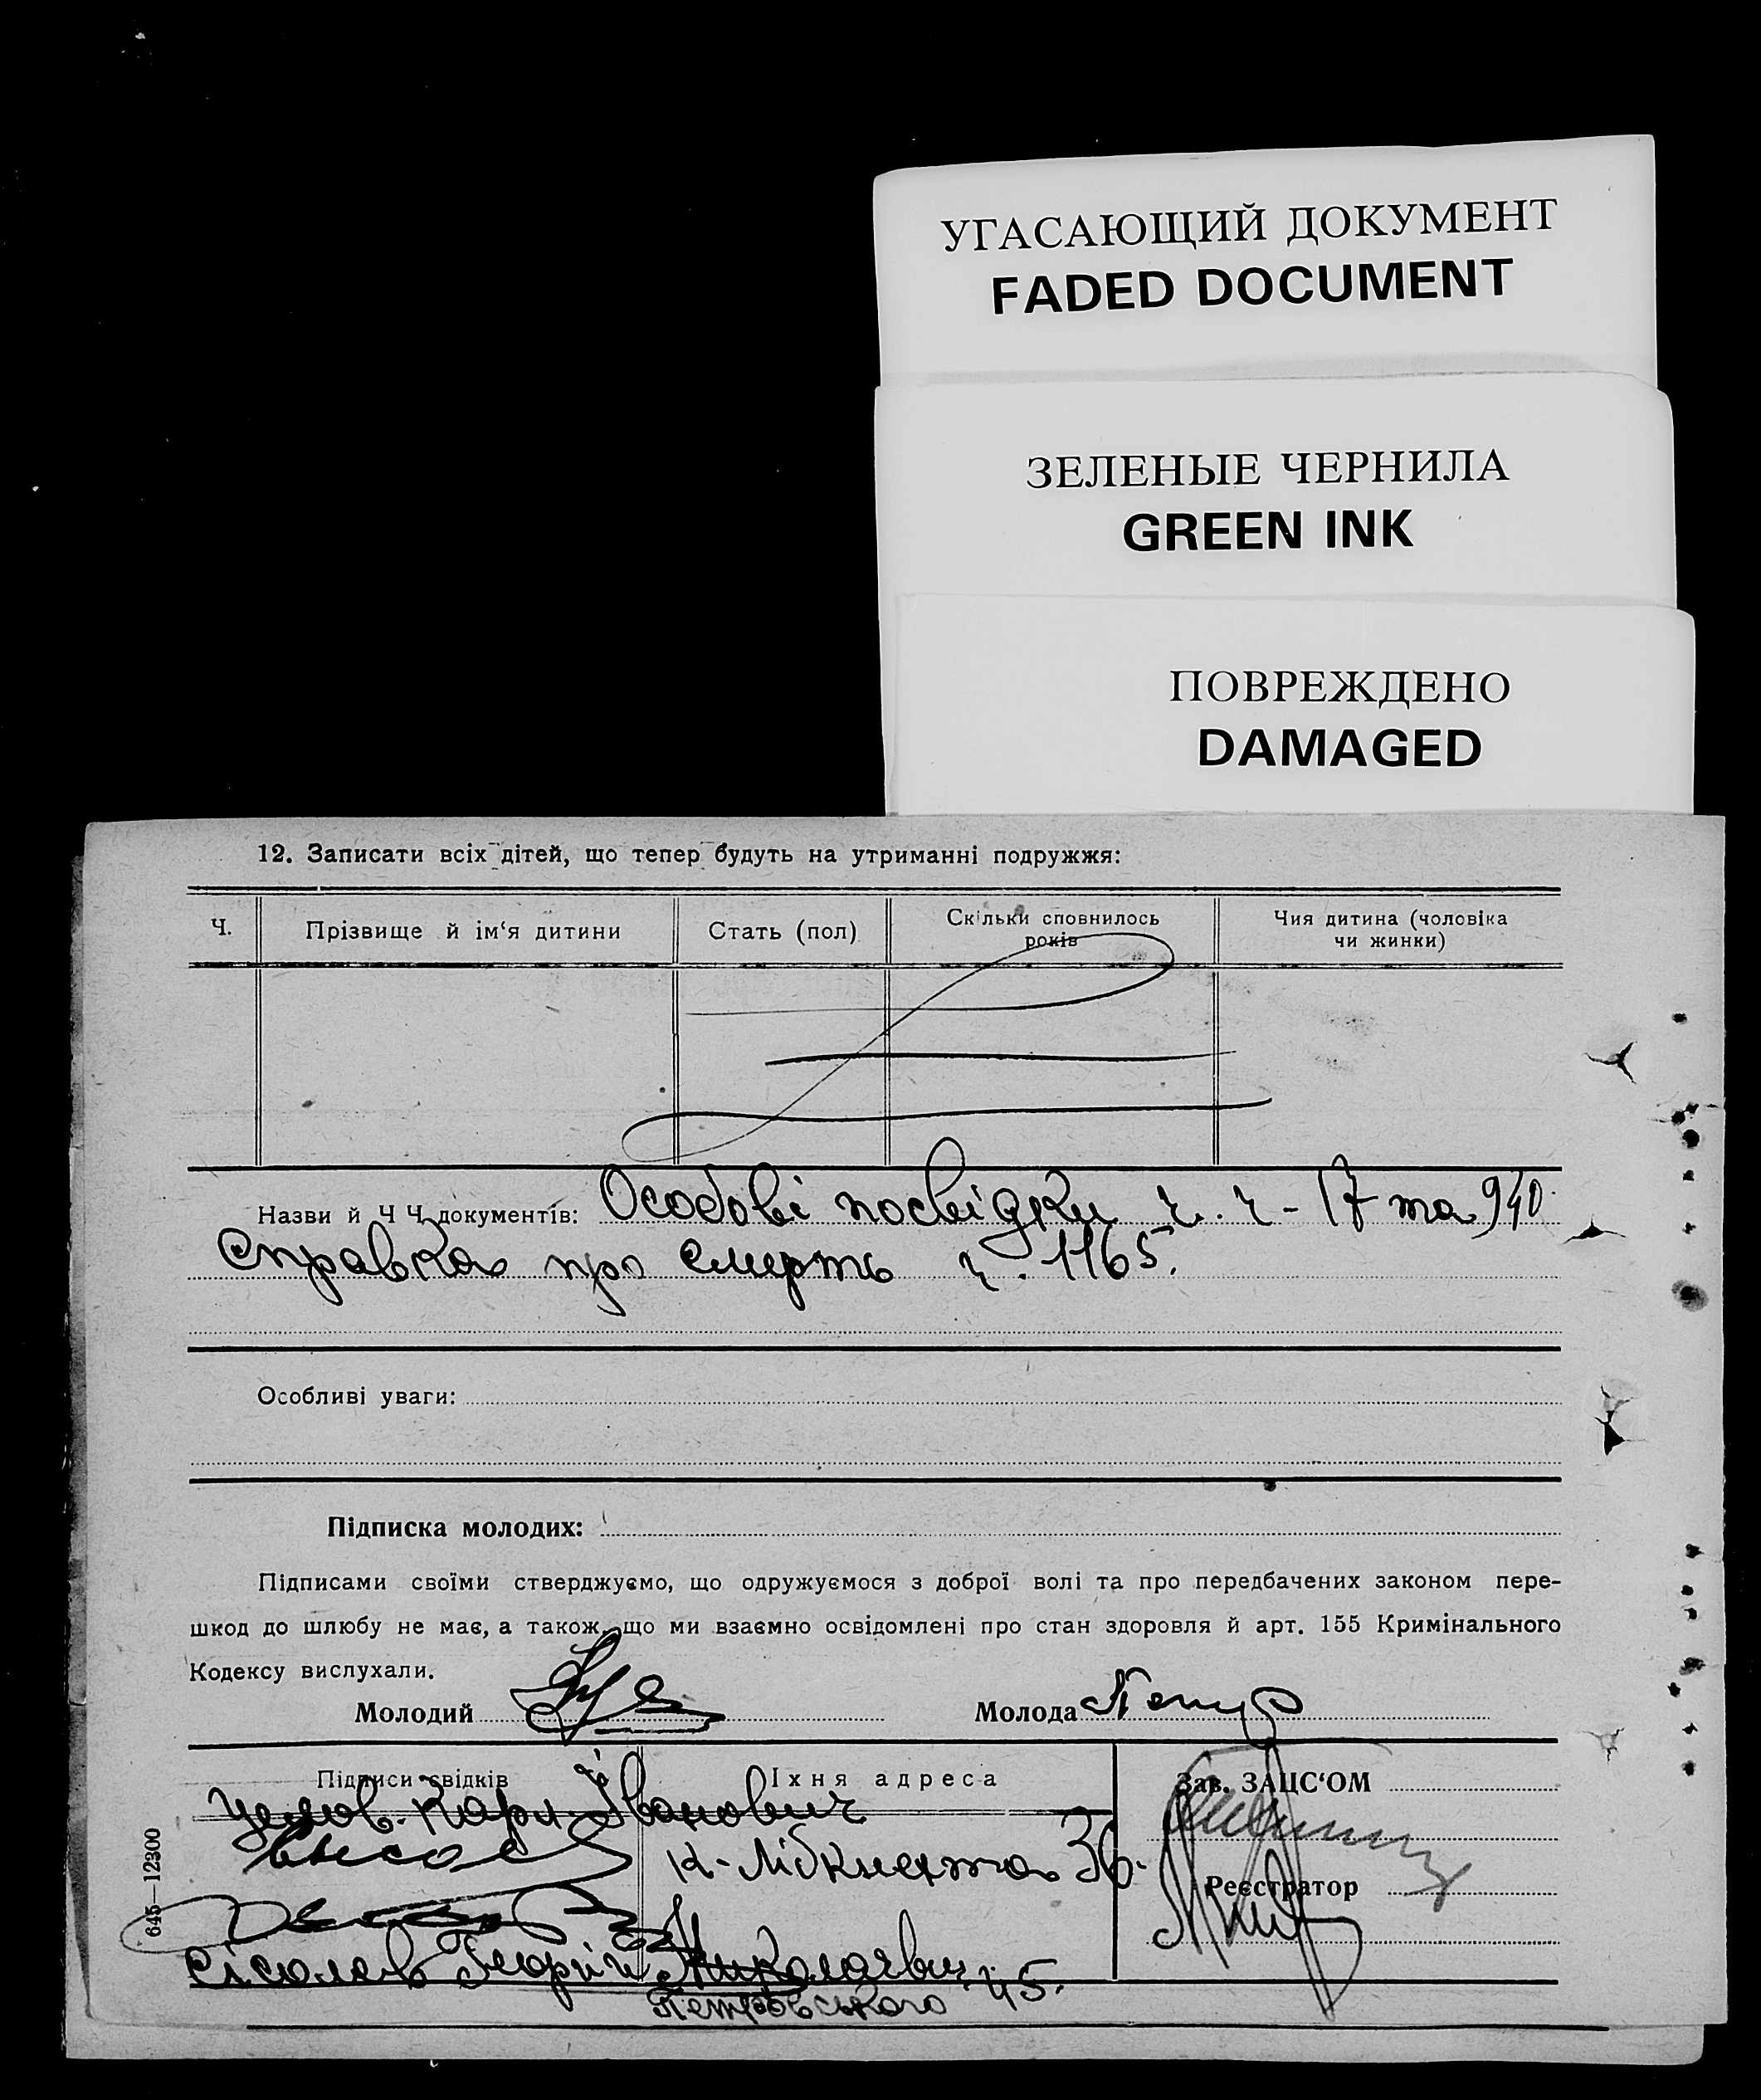 УГАСАЮЩИЙ ДОКУМЕНТ
FADED DOCUMENT
ЗЕЛЕНЫЕ ЧЕРНИЛА
GREEN INK
ПОВРЕЖДЕНО
DAMAGED
12. Записати всіх дітей, що тепер будуть на утриманні подружжя:
Ч. Прізвище й ім‘я дитини Стать (пол) Скільки сповнилось років Чия дитина (чоловіка чи жинки)
Назви й Ч Ч документів: Особові посвідки ч. ч - 17 та 940
Справка про смерть ч. 1165.
Особливі уваги:
Підписка молодих:
Підписами своїми стверджуємо, що одружуємося з доброї волі та про передбачених законом пере-
шкод до шлюбу не має, а також, що ми взаємно освідомлені про стан здоровля й арт. 155 Кримінального
Кодексу вислухали.
Молодий Молода
Підписи свідків Їхня адреса Зав. ЗАЦС‘ОМ
Карл Іванович
К-Лібкнехта 36.
Реєстратор
Георгій Николаевич 45.
Петровського
645—12300